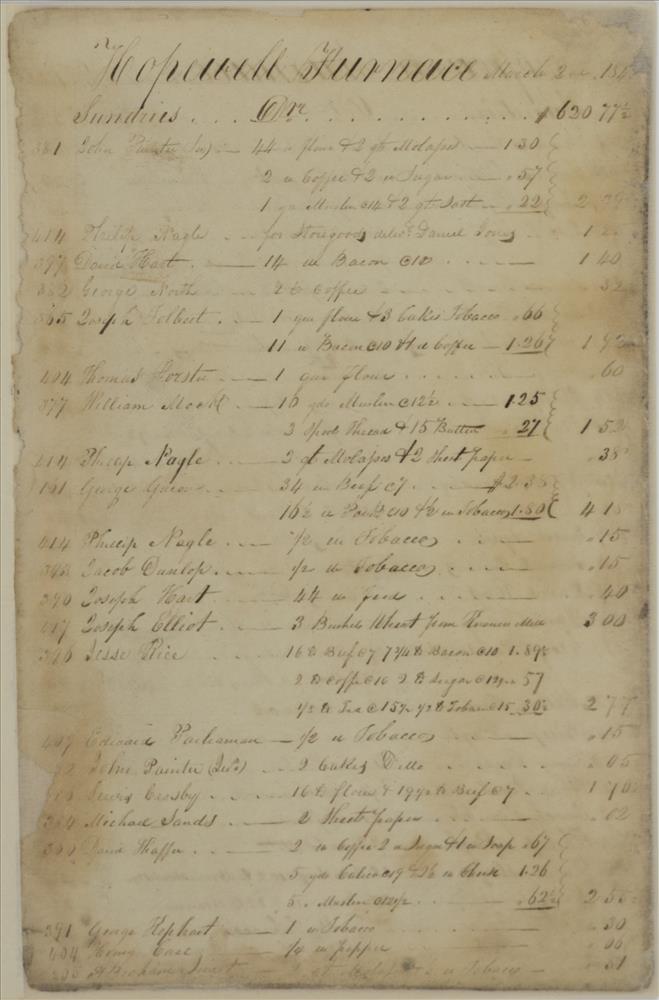 Hopewell Furnace March 2nd 184
Sundries . . . Drs . . . . . . . . . . . $620 77½
381 John Painter (Sen) — 44 lb flour & 2 qts Molasses — 1 30
2 lb Coffee & 2 lb Sugar — 57
1 Muslin @14 & 2 qt Salt — .22 2
414 Phillip Nagle . . — for Storegoods delivd Daniel Jones 1 2
397 David Hart . — 14 lb Bacon @10 . . . — 1 40
382 George North — 2 lb Coffee — . 32
365 Joseph Tolbert . — 1 qur flour & 3 Cakes Tobacco .66
11 lb Bacon @10 & 1 lb Coffee — 1.26 1 92
404 Thomas Forster . — 1 qur flour . . . . . — .60
377 William Mock — 10 yds Muslin @12½ . — 1.25
3 Spool Thread & 15 Button — .27 1 52
414 Phillip Nagle . . — 2 qt Molasses & 2 Sheet paper — . 38
161 George — 34 lb Beef @7 . . $2.38
16½ lb Pork @10 & ½ lb Tobacco 1.80 4 18
414 Phillip Nagle . . — ½ lb Tobacco . . . — . 15
Jacob Dunlop . . — ½ lb Tobacco . . . — . 15
390 Joseph Hart . — 44 lb feed . . . — . 40
417 Joseph Elliot . — 3 Bushels Wheat from Mill 3 00
396 Jesse Rice . . — 16 lb Beef @7 7¾ lb Bacon @10 1.89½
2 lb Coffee @16 2 lb Sugar @12½ . 57
½ lb Tea @ 15 ½ lb Tobacco @15 .30½ 2 77
407 Edward Parlaman — ½ lb Tobacco . . . — . 15
John Painter (Jur) . — 2 Cakes Ditto . . . — . 05
Lewis Crosby . . . — 16 lb flour & 19½ lb Beef @7 . . . 1 70
384 Michael Sands . . — 2 Sheets paper . . . — . 02
David Shaffer . . — 2 lb Coffee 2 lb Sugar & 1 lb Soap .67
5 yds Calico @19 & lb Cheese 1.26
5 . Muslin @12½ . . . . .62½ 2 55
391 George Hephart . — 1 lb Tobacco . . . — . 30
404 Henry Care . — ¼ lb Pepper . . . — . 06
Abraham — qt Molasses & lb Tobacco — . 31